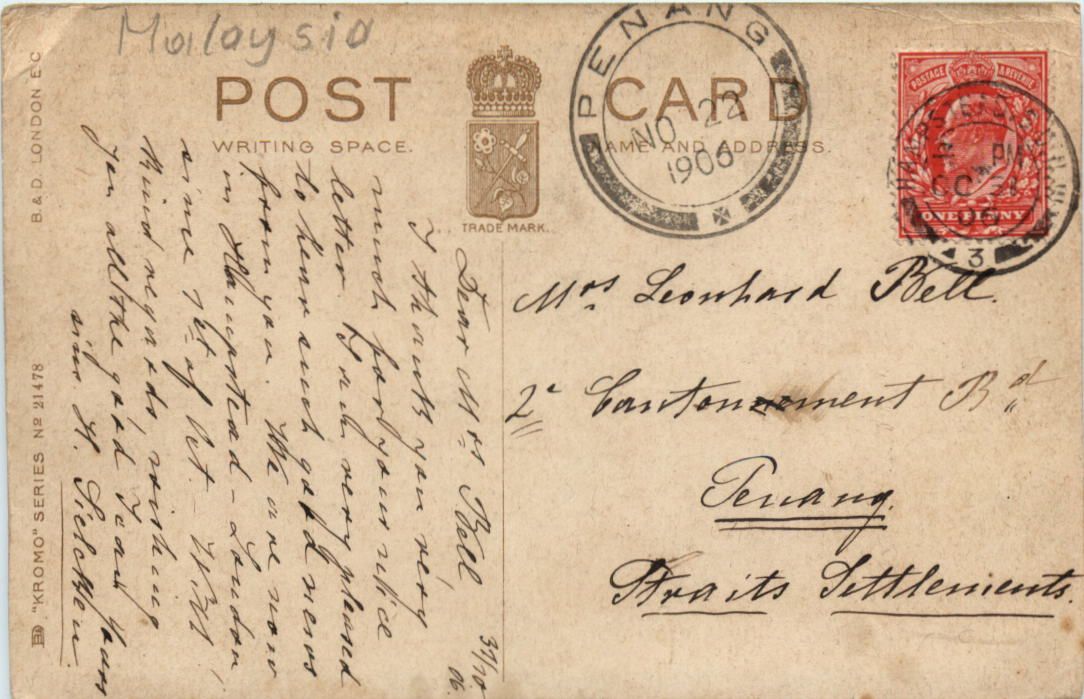 Malaysia
POST CARD
WRITING SPACE.
NAME AND ADDRESS.
TRADE MARK.
B & D. LONDON E C
"KROMO" SERIES Nº 21478
PENANG
NO 22
1906
POSTAGE & REVENUE
ONE PENNY
PM
OC 31
3
Mrs Leonhard Bell.
2a Cantonnement Rd
Penang.
Straits Settlements.
31/10. 06.
Dear Mrs Bell,
I thank you very
much for your nice
letter. I am very pleased
to hear such good news
from you. We are now
in Hampstead - London
since 1st of Oct. - With
kind regards, wishing
you all the good I am yours
sinc. H.